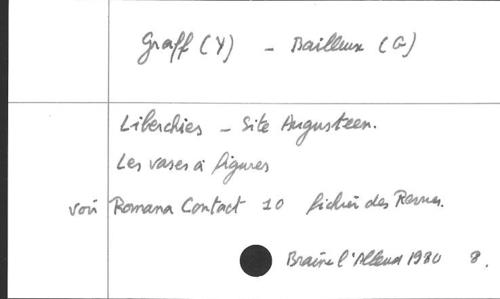 Graff (Y) - Bailleux (G)
Liberchies - Site Augusteen.
Les vases à figures
voir Romana Contact 10 fichier des Revues.
Braine l'Alleud 1980 8.